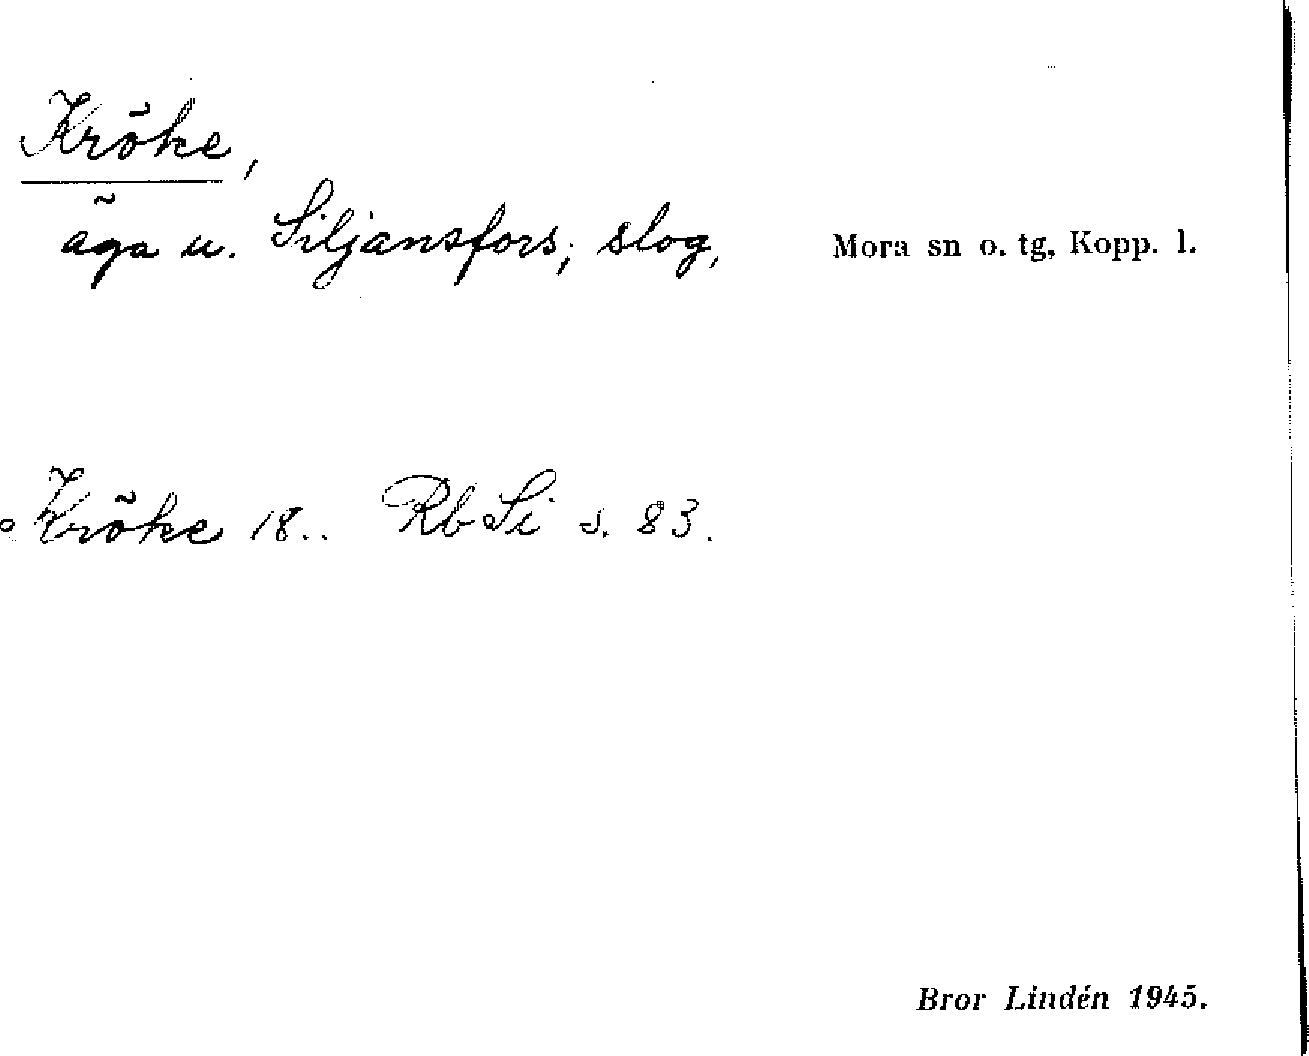 Kröke,
äga u. Siljansfors; slog, Mora sn o. tg, Kopp. l.
Kröke 18.. Rb Si s. 83.
Bror Lindén 1945.